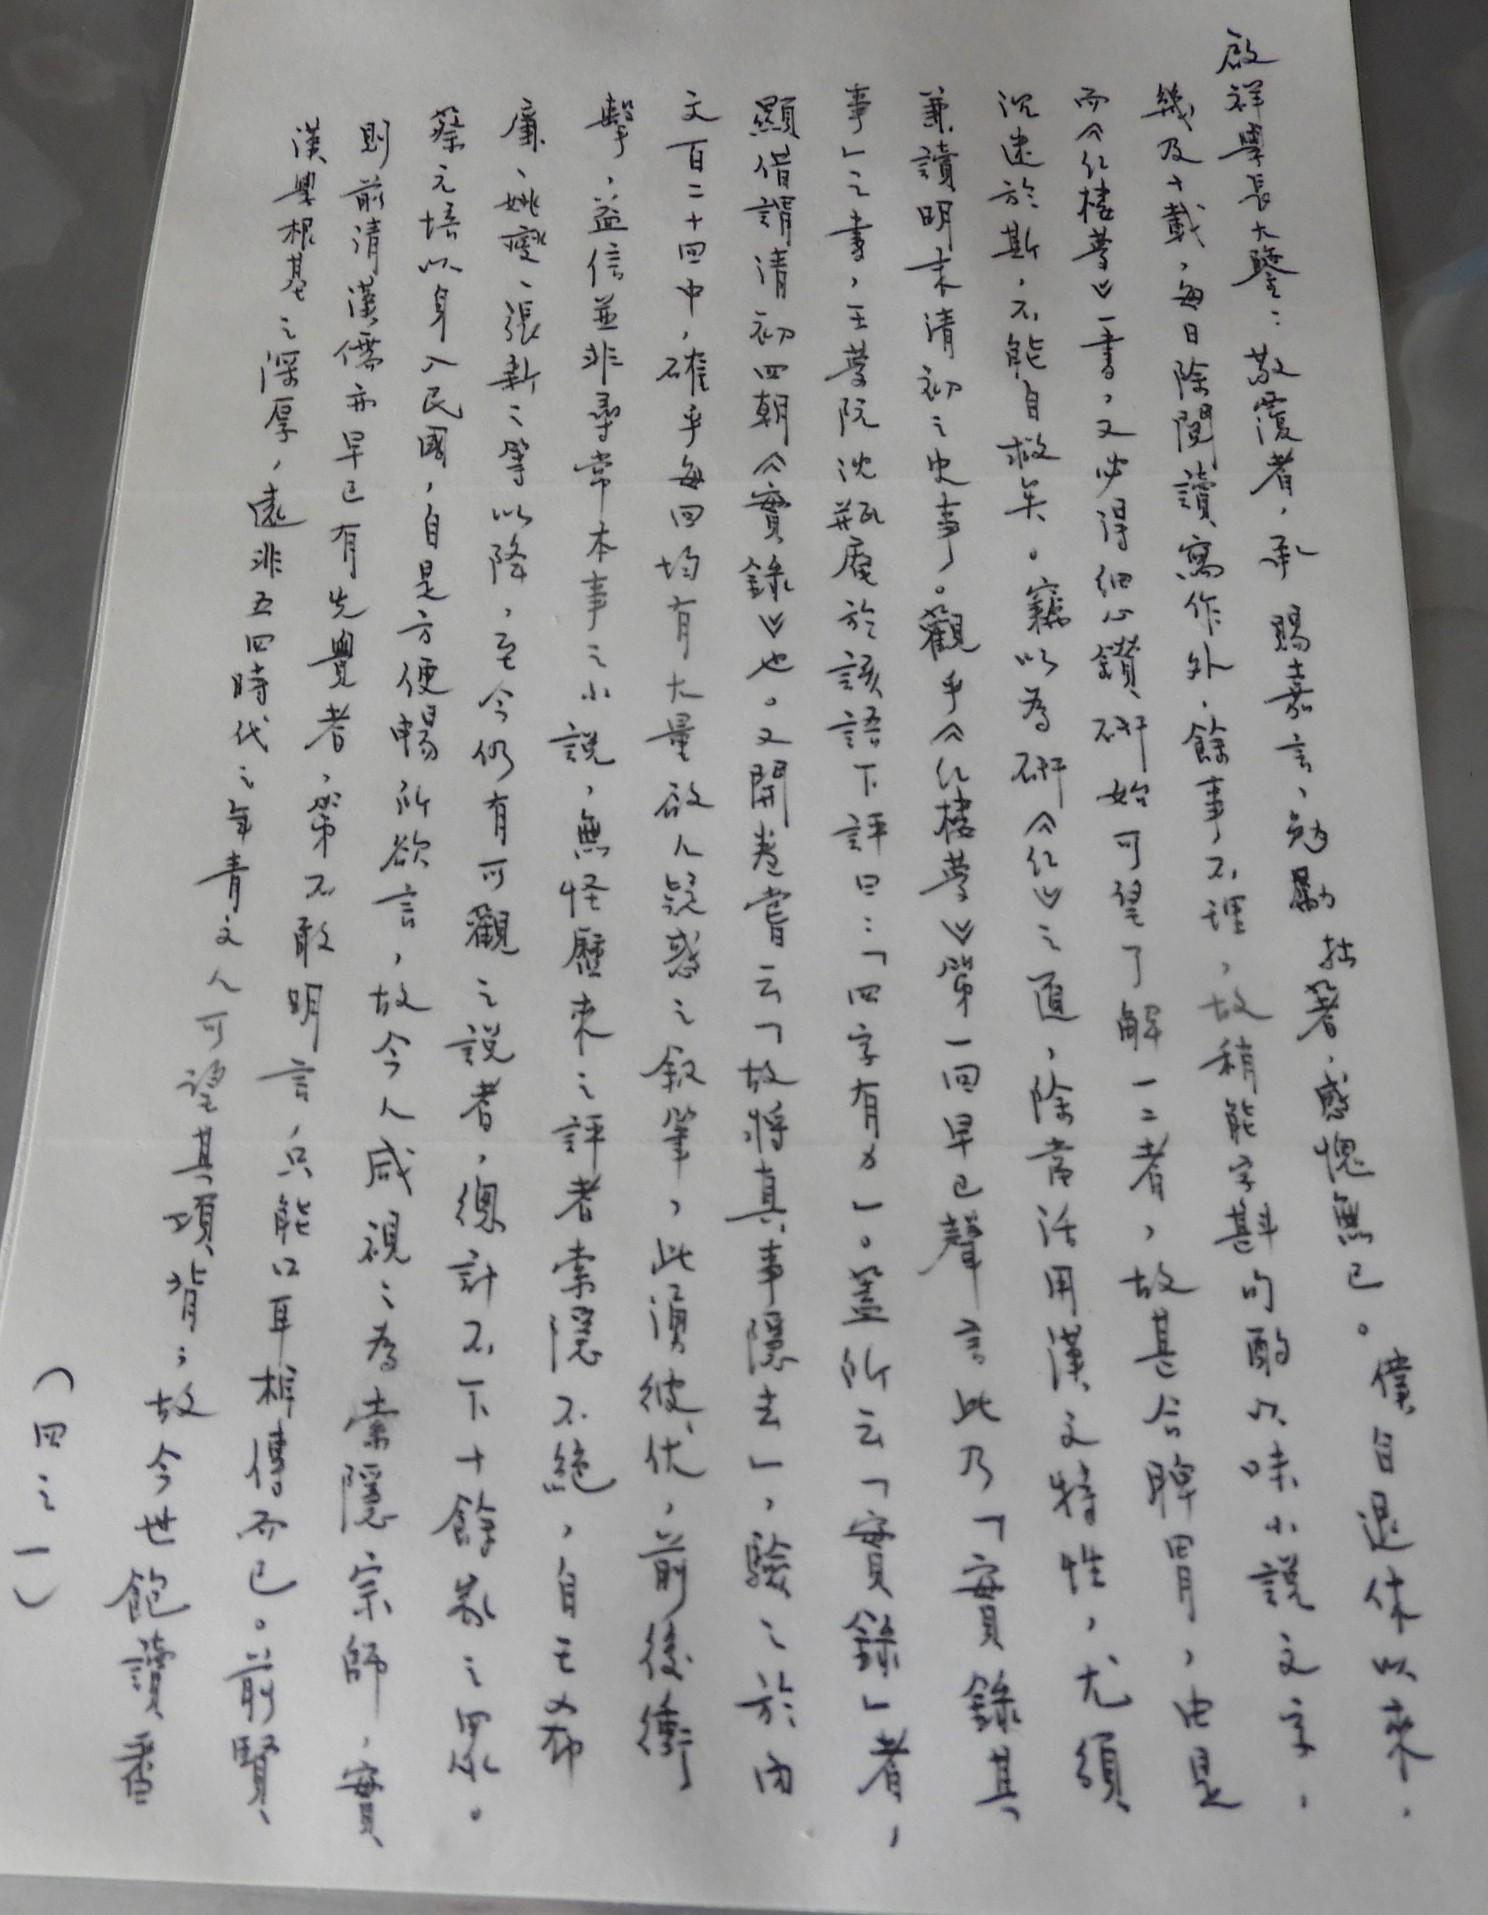 啟祥學長大鑒：敬覆者，承 賜嘉言，勉勵拙著，感愧無已。僕自退休以來，
幾及十載，每日除閱讀寫作外，餘事不理，故稍能字斟句酌以味小說文字，
而《紅樓夢》一書，又必得細心鑽研始可望了解一二者，故甚合脾胃，由是
沉迷於斯，不能自救矣。竊以為研《紅》之道，除當活用漢文特性，尤須
兼讀明末清初之史事。觀乎《紅樓夢》第一回早已聲言此乃「實錄其
事」之書，王夢阮沈瓶庵於該語下評曰：「四字有力」。蓋所云「實錄」者，
顯借謂清初四朝《實錄》也。又開卷嘗云「故將真事隱去」，驗之於內
文百二十回中，確乎每回均有大量啟人疑惑之敘筆，此湧彼伏，前後衝
擊，益信並非尋常本事之小說，無怪歷來之評者索隱不絕，自王
廉、姚燮、張新之等以降，至今仍有可觀之說者，總計不下十餘家之眾。
蔡元培以身入民國，自是方便暢所欲言，故今人咸視之為索隱宗師，實
則前清漢儒亦早已有先覺者，第不敢明言，只能口耳相傳而已。前賢
漢學根基之深厚，遠非五四時代之年青文人可望其項背；故今世飽讀番
（四之一）